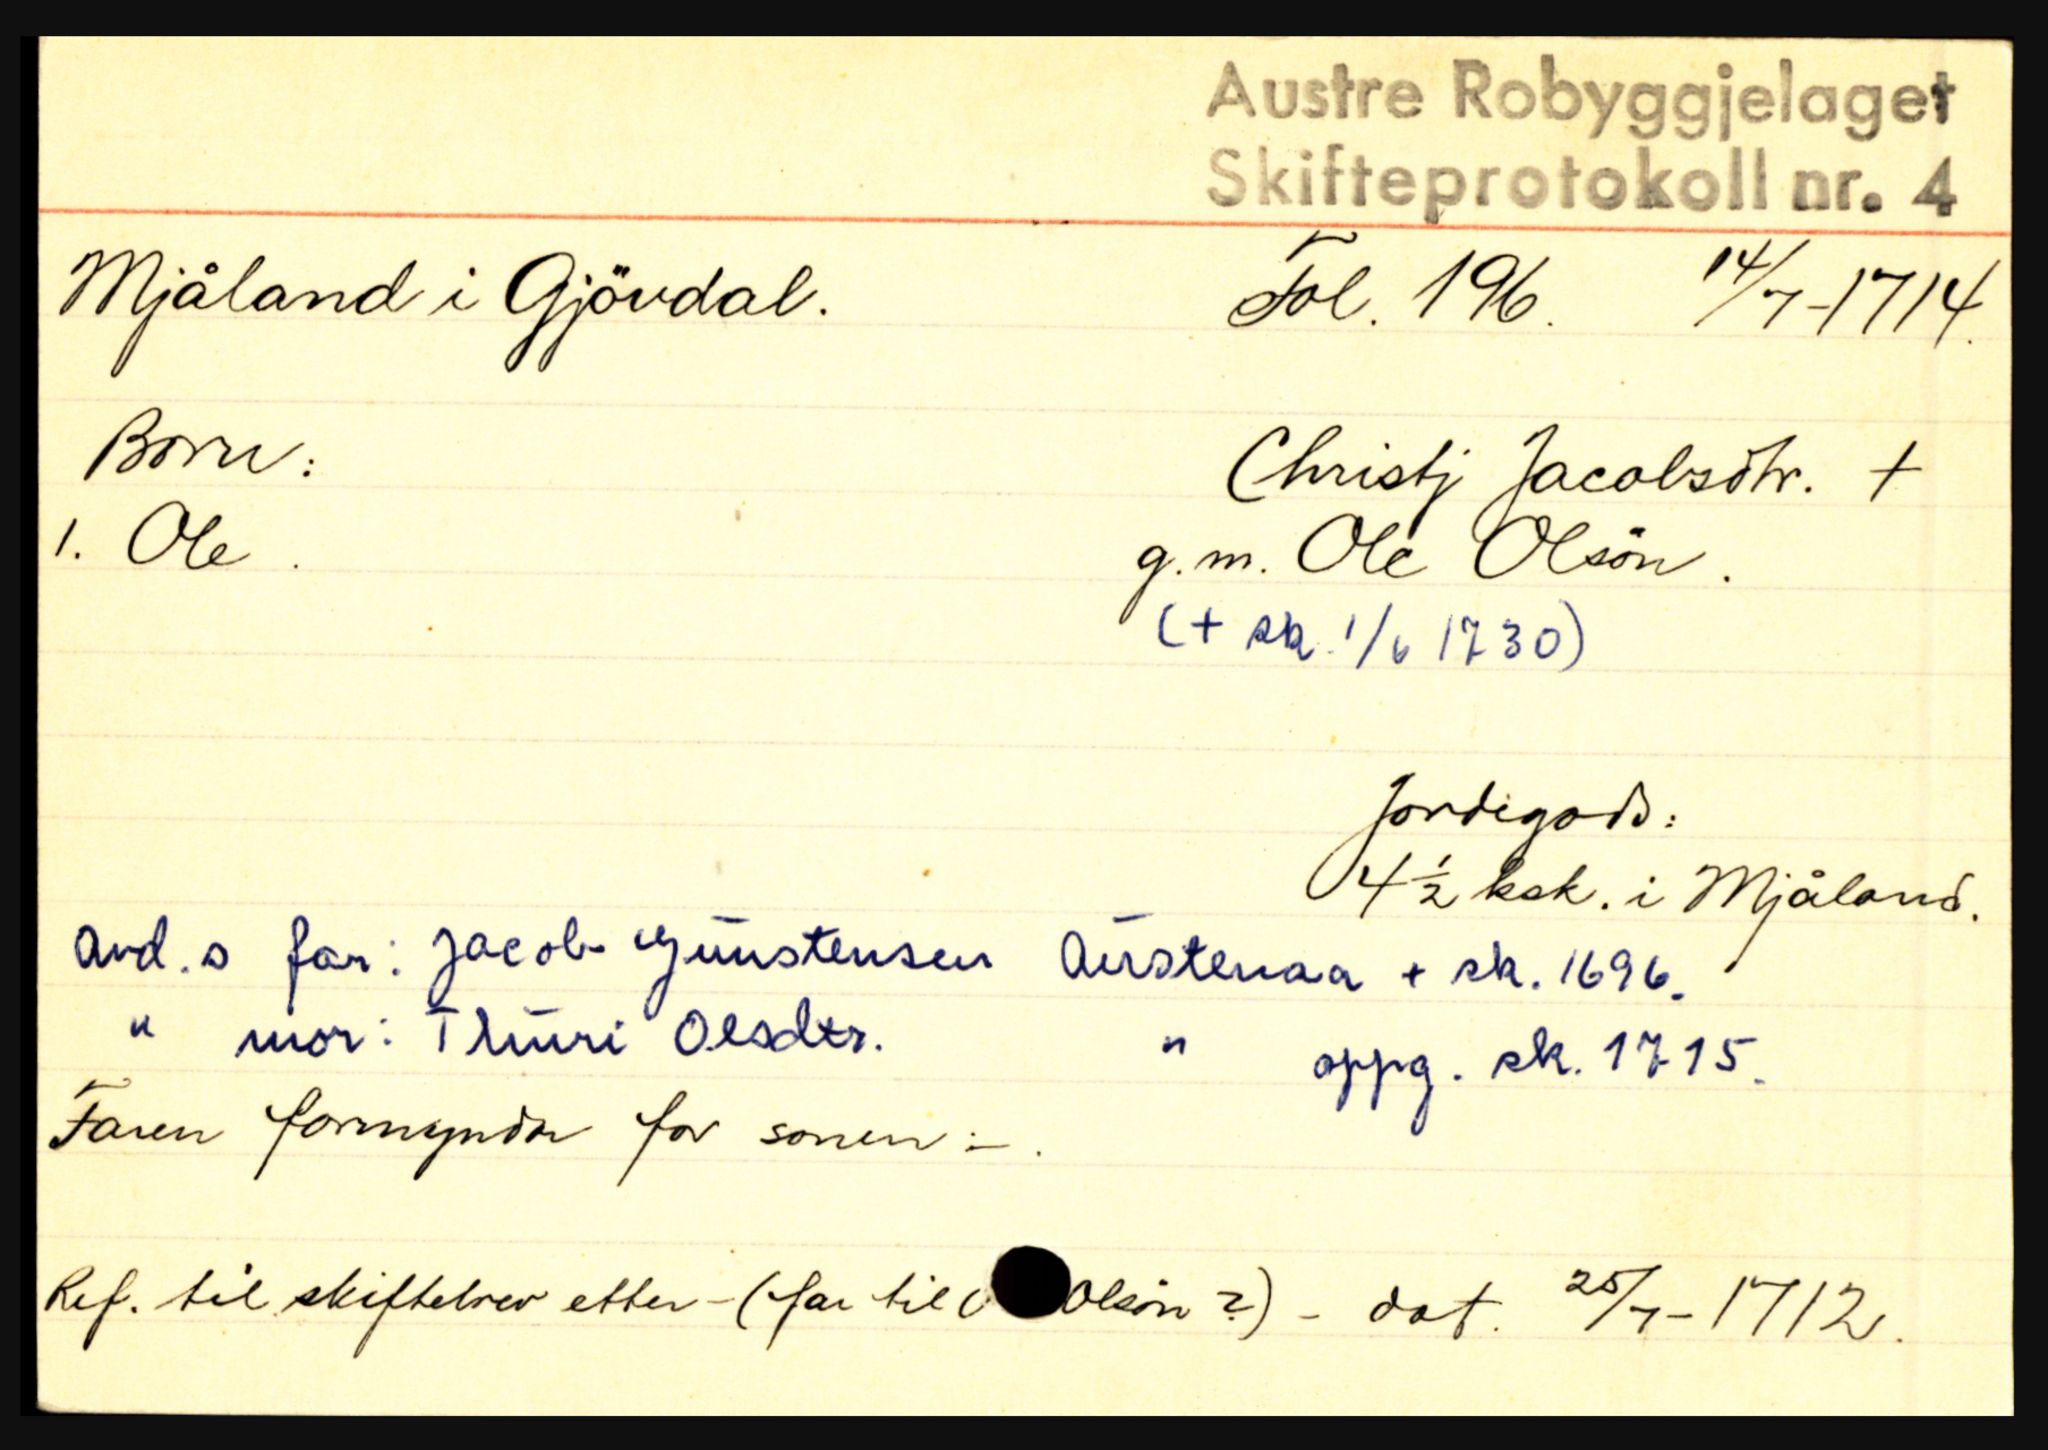 Austre Robyggjelaget
Skifteprotokoll nr. 4
Mjåland i Gjövdal. Fol. 196. 14/7-1714.
Born: Christj Jacobsdtr. +
1. Ole. g.m. Ole Olsön.
(+ sk. 1/6 1730)
Jordigods:
4½ ksk. i Mjåland.
Avd.s far: Jacob Gunstensen Austenaa + sk. 1696.
" mor: Thuri Olsdtr. " oppg. sk. 1715.
Faren formyndar for sonen -.
Ref. til skiftebrev etter - (far til Olsön?) - dat. 25/7-1712.